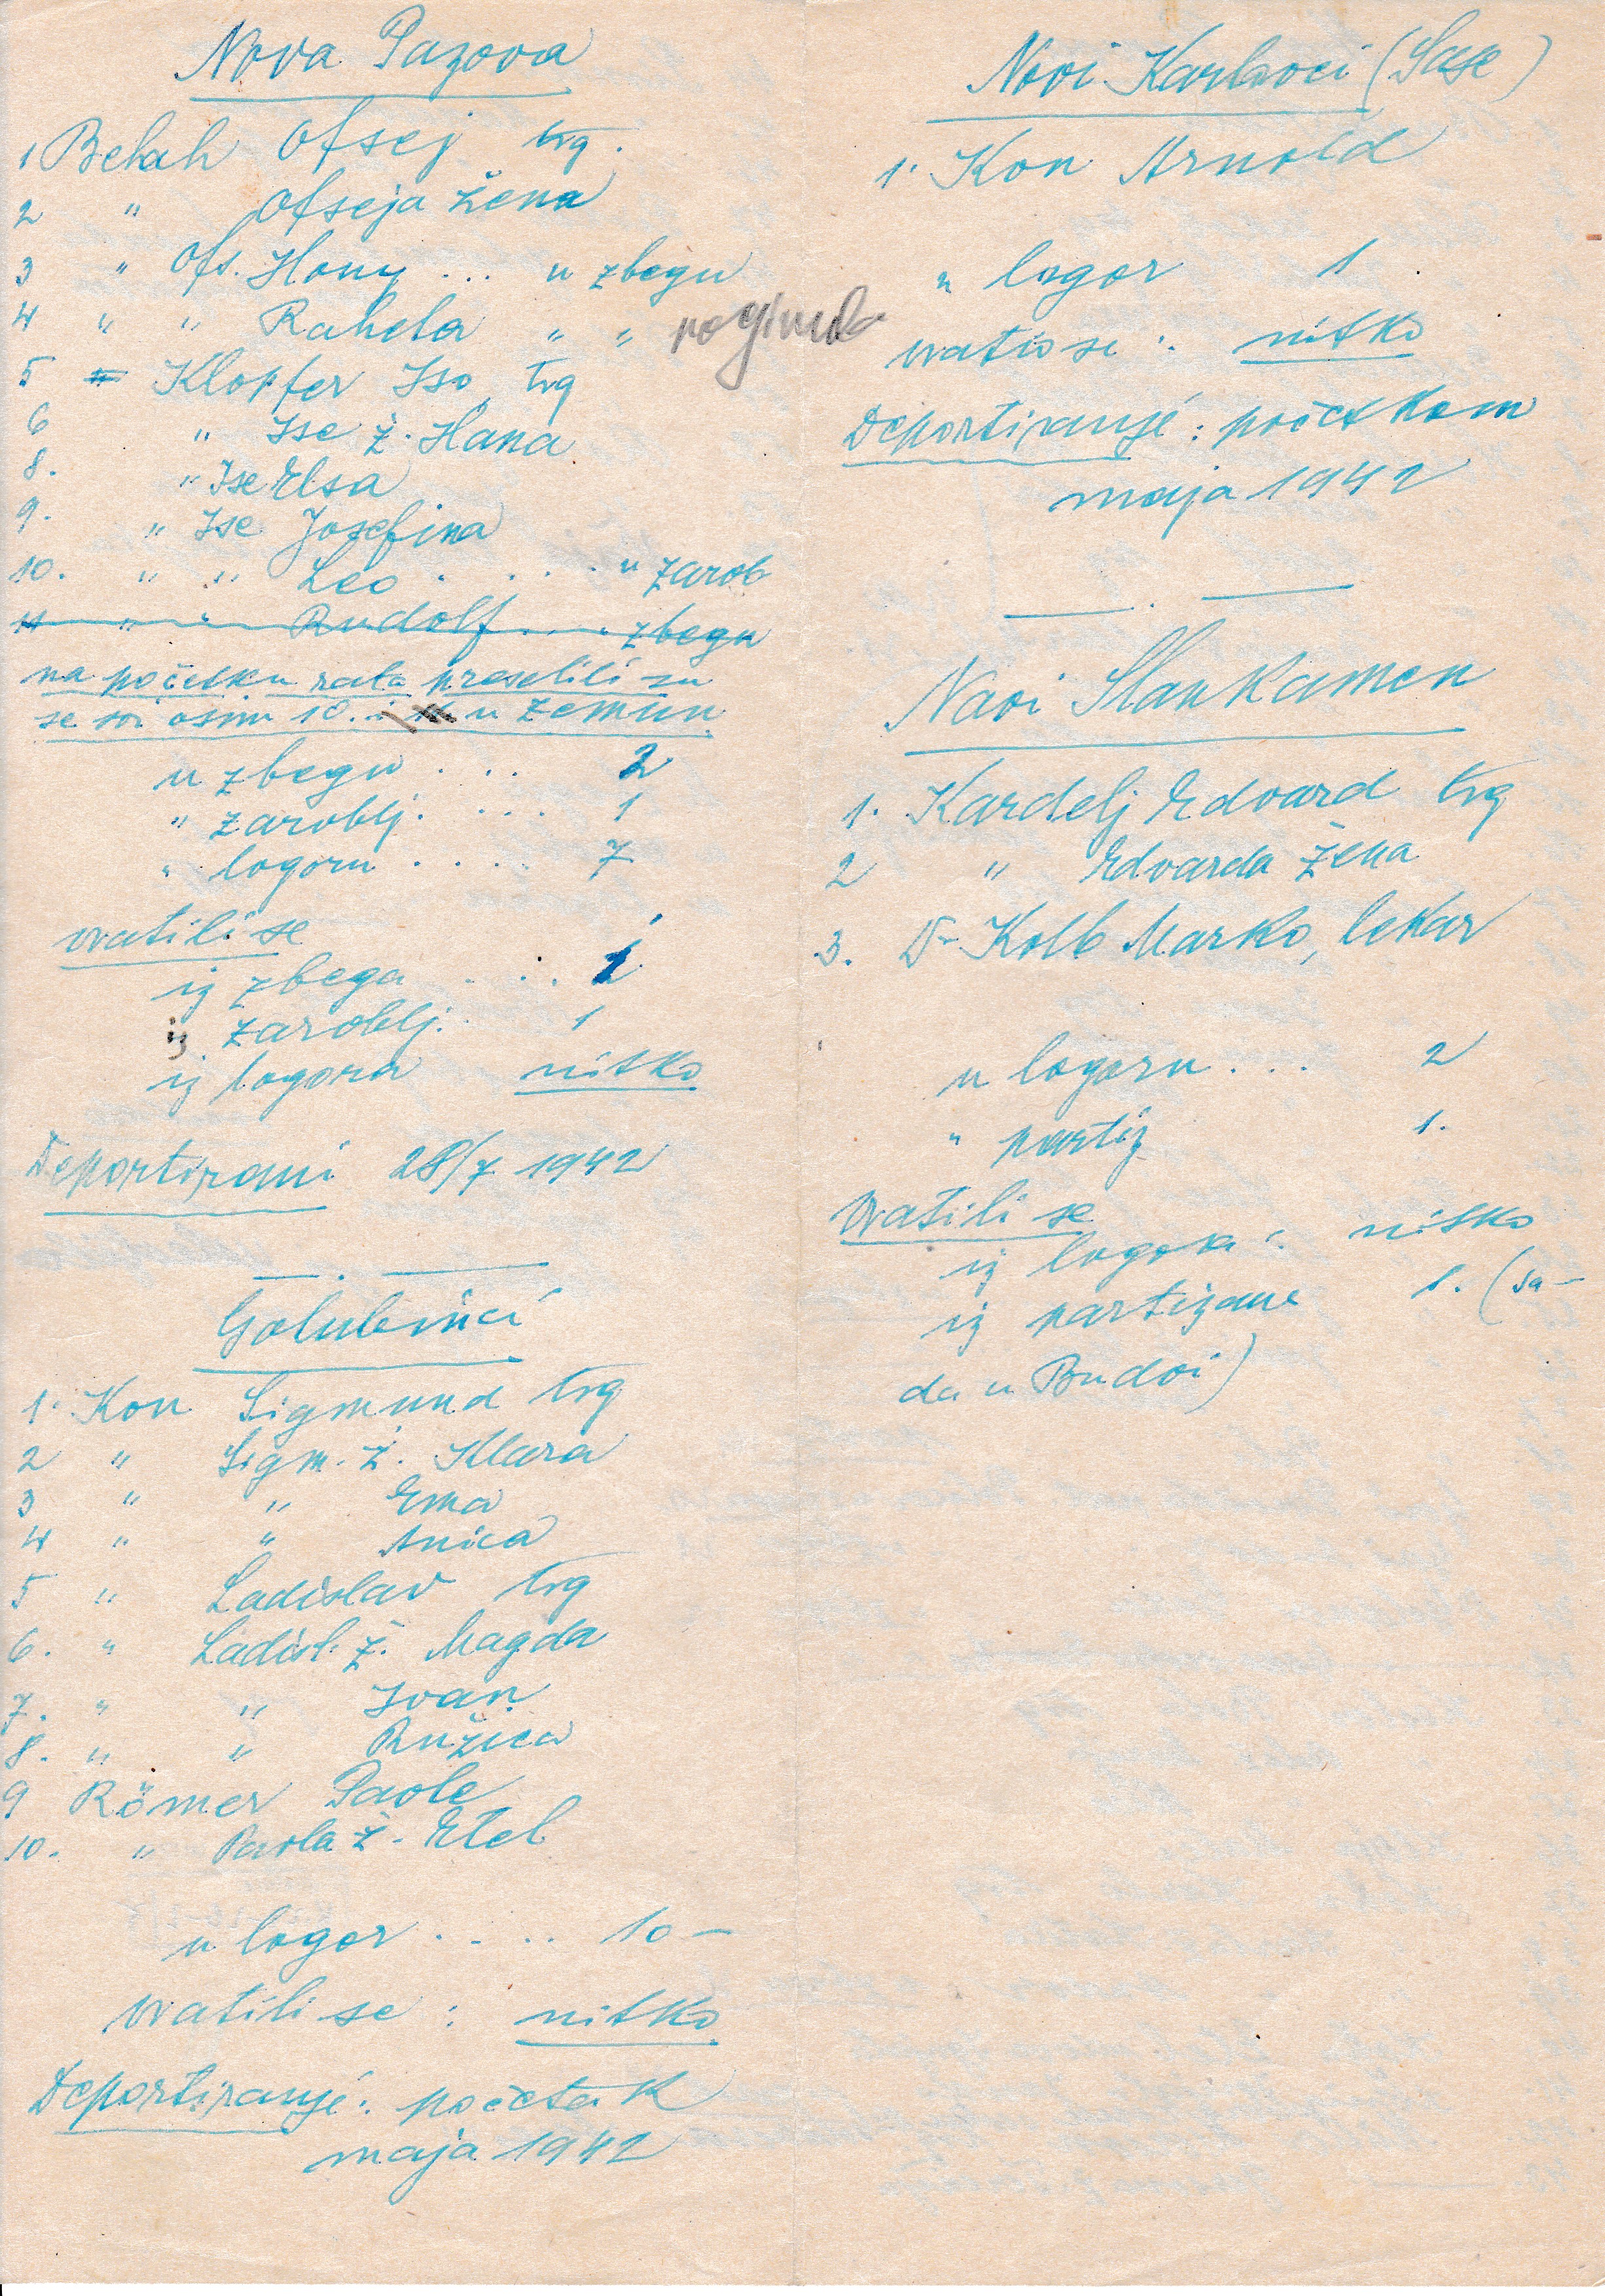 Nova Pazova
1 Belah Ofsej trg.
2 " Ofseja žena
3 " Ofs. Hony ... u zbegu
4 " " Rahela " " poginula
5 Klopfer Iso, trg
6 " Ise ž. Hana
8. " Ise Elsa
9. " Ise Josefina
10. " " Leo . . . . u zarob
11 " " Rudolf .... " zbegu
na početku rata preselili su
se svi osim 10. i 11. u Zemun.
u zbegu . . . 2
" zaroblj. . . . 1
" logoru . . . . 7
vratili se
iz zbega . . . 1
iz zaroblj. . 1
iz logora nitko
Deportirani 28/7 1942
Golubinci
1. Kon Sigmund trg
2 " Sigm. ž. Klara
3 " " Ema
4 " " Anica
5 " Ladislav trg
6. " Ladisl. ž. Magda
7. " " Ivan
8. " " Ružica
9 Römer Pavle
10. " Pavla ž. Etel
u logor . . . . 10 —
vratili se : nitko
Deportiranje: početak
maja 1942
Novi Karlovci (Sase)
1. Kon Arnold
u logor 1
vratio se : nitko
Deportiranje : početkom
maja 1942
Novi Slankamen
1. Kardelj Edvard trg
2 " Edvarda žena
3. Dr Kolb Marko, lekar
u logoru . . . 2
" partiz 1.
Vratili se
iz logora : nitko
iz partizana 1. (sa-
da u Budvi)